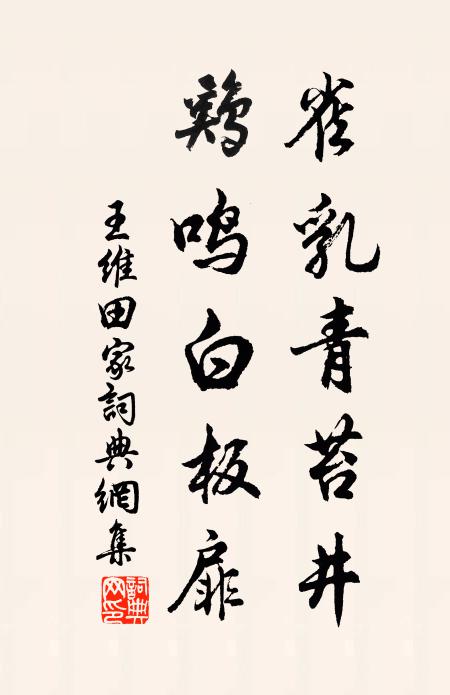 雀乳青苔井
鷄鳴白板扉
王維田家詞典網集
詞典网印